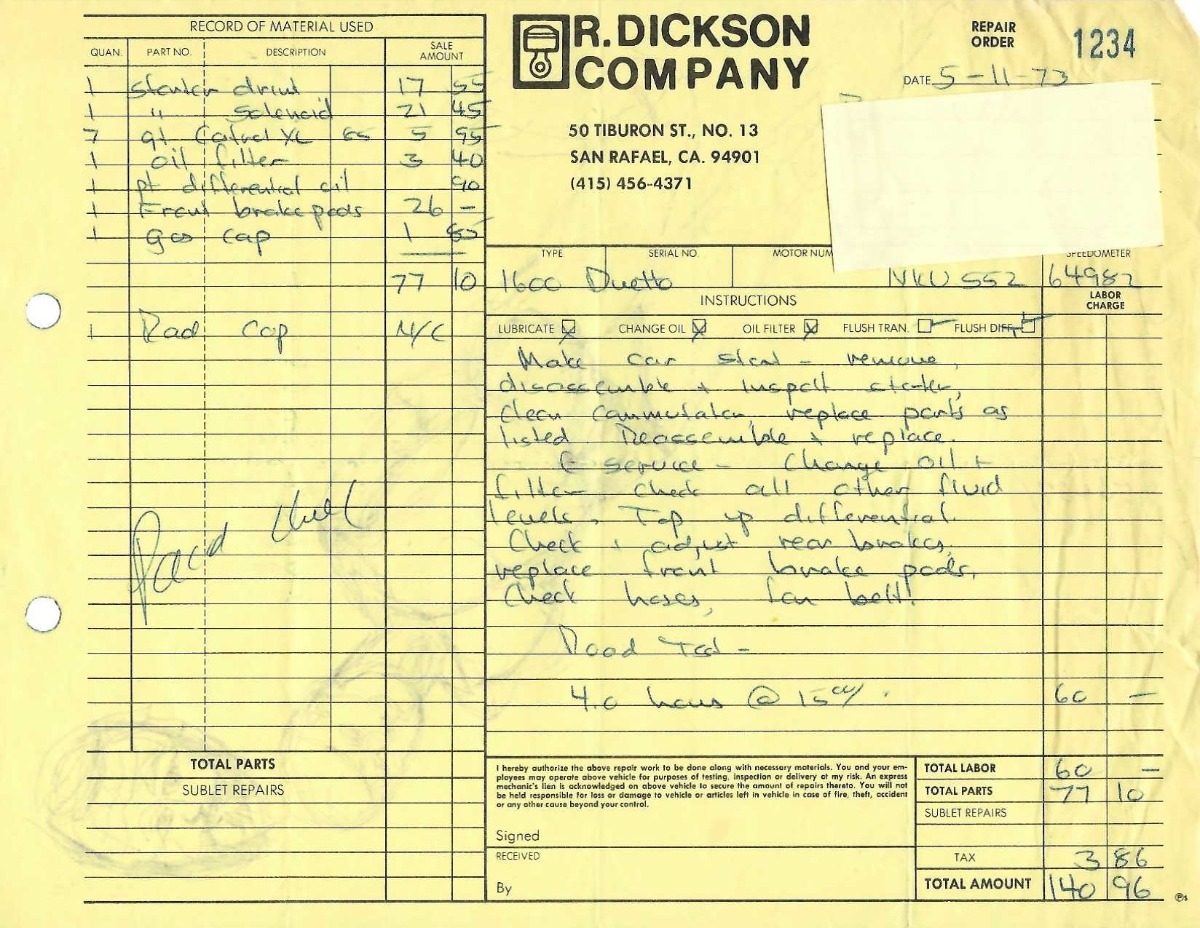 RECORD OF MATERIAL USED
QUAN. PART NO. DESCRIPTION SALE AMOUNT
1 starter drive 17 55
1 " Solenoid 21 45
7 qt Castrol XL 85 5 95
1 oil filter 3 40
1 pt differential oil 90
1 Front brake pads 26 –
1 Gas cap 1 85
77 10
1 Rad Cap N/C
Paid
TOTAL PARTS
SUBLET REPAIRS
R. DICKSON
COMPANY
50 TIBURON ST., NO. 13
SAN RAFAEL, CA. 94901
(415) 456-4371
REPAIR ORDER 1234
DATE 5-11-73
TYPE SERIAL NO. MOTOR NUM SPEEDOMETER
1600 Duetto NKU 552 64982
INSTRUCTIONS LABOR CHARGE
LUBRICATE CHANGE OIL OIL FILTER FLUSH TRAN. FLUSH DIFF.
Make car start – remove,
disassemble + inspect starter,
clean commutator, replace parts as
listed. Reassemble + replace.
service – Change oil +
filter check all other fluid
levels. Top up differential.
Check + adjust rear brakes,
replace front brake pads,
Check hoses, fan belt!
Road Test –
4.0 hours @ 15 60 –
I hereby authorize the above repair work to be done along with necessary materials. You and your em-
ployees may operate above vehicle for purposes of testing, inspection or delivery at my risk. An express
mechanic's lien is acknowledged on above vehicle to secure the amount of repairs thereto. You will not
be held responsible for loss or damage to vehicle or articles left in vehicle in case of fire, theft, accident
or any other cause beyond your control.
Signed
RECEIVED
By
TOTAL LABOR 60 –
TOTAL PARTS 77 10
SUBLET REPAIRS
TAX 3 86
TOTAL AMOUNT 140 96